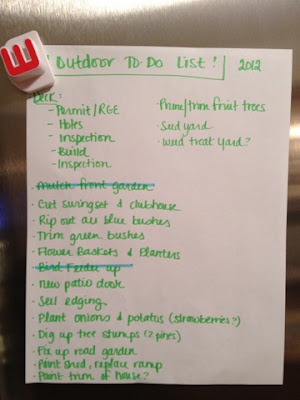 E
Outdoor To-Do List! 2012
Deck:
- Permit/RGE
- Holes
- Inspection
- Build
- Inspection
· Prune/trim fruit trees
· Seed yard
· Weed treat yard?
· Mulch front garden
· Cut swingset & clubhouse
· Rip out all blue bushes
· Trim green bushes
· Flower Baskets & Planters
· Bird Feeder up
· New patio door
· Sell edging
· Plant onions & potatos (strawberries?)
· Dig up tree stumps (2 pines)
· Fix up road garden
· Paint shed, replace ramp
· Paint trim of house?